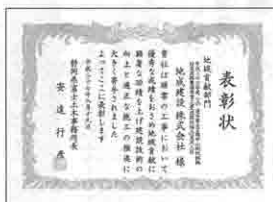 表彰状
地域貢献部門
地成建設 株式会社 様
貴社は頭書の工事において
優秀な成績をおさめ地域貢献に
顕著な功績を上げ建設技術の
向上と適正な施工の推進に
大きく寄与されました
よってここに表彰します
静岡県富士土木事務所長
安達行彦